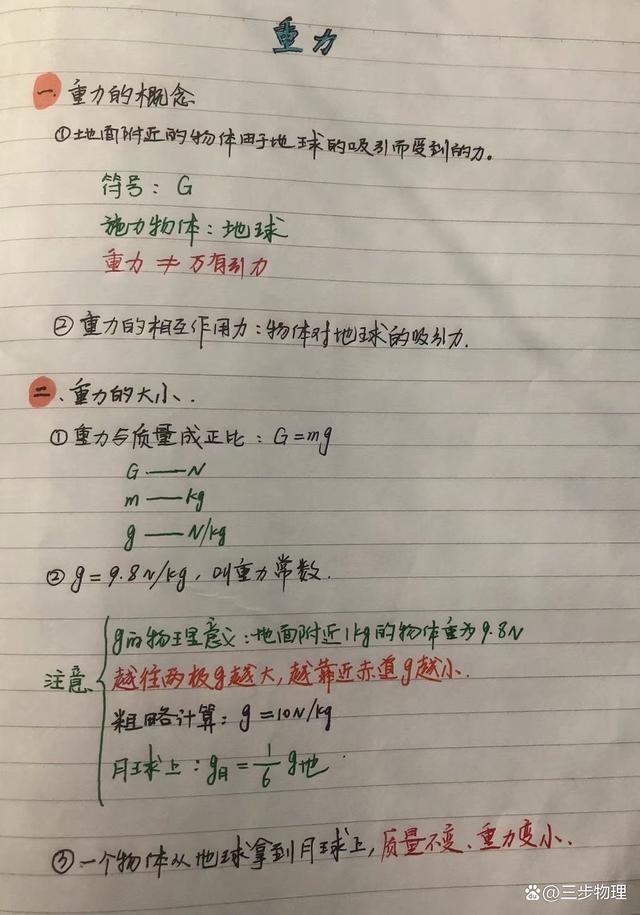 重力
一、重力的概念
①地面附近的物体由于地球的吸引而受到的力。
符号：G
施力物体：地球
重力≠万有引力
②重力的相互作用力：物体对地球的吸引力.
二、重力的大小.
①重力与质量成正比：G=mg
G——N
m——kg
g——N/kg
②g=9.8N/kg，叫重力常数.
注意
g的物理意义：地面附近1kg的物体重为9.8N
越往两极g越大，越靠近赤道g越小.
粗略计算：g=10N/kg
月球上：g月=1/6 g地.
③一个物体从地球拿到月球上，质量不变、重力变小.
@三步物理